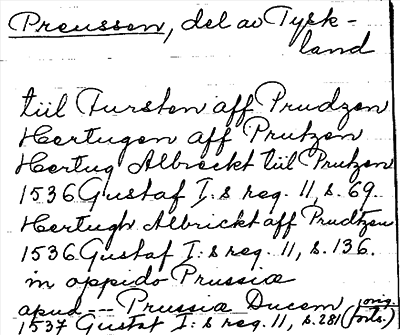 Preussen, del av Tysk-
land
tiil Fursten aff Prudzen
Hertugen aff Prutzen
Hertug Albreckt tiil Prutzen
1536 Gustaf I:s reg. 11, s. 69.
Hertugh Albrickt aff Prudtzen
1536 Gustaf I:s reg. 11, s. 136.
in oppido Prussiæ
apud -- Prussiæ Ducem (orig.
1537 Gustaf I:s reg. 11, s. 281 (forts.)